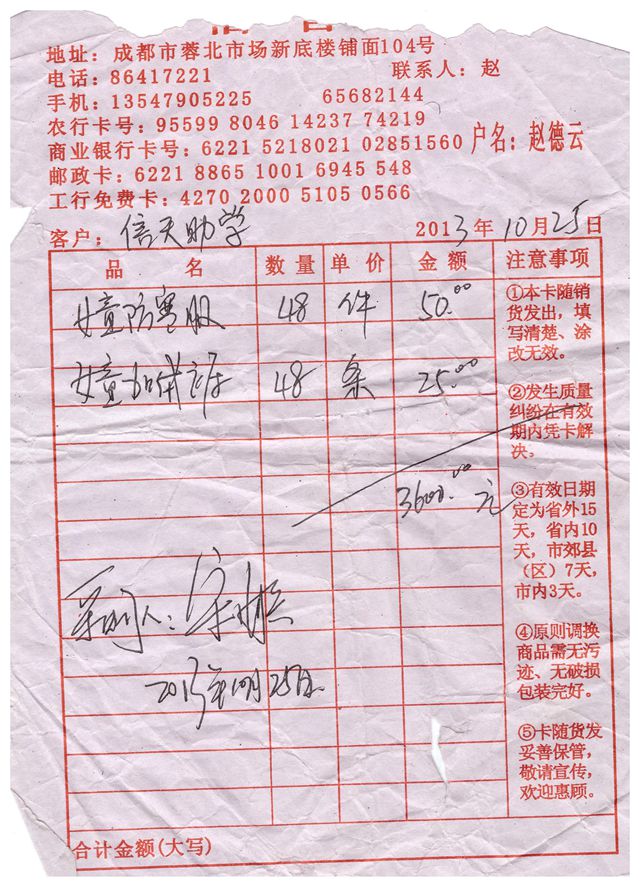 信 誉
地址：成都市蓉北市场新底楼铺面104号
电话：86417221 联系人：赵
手机：13547905225 65682144
农行卡号：95599 8046 14237 74219
商业银行卡号：6221 5218021 02851560 户名：赵德云
邮政卡：6221 8865 1001 6945 548
工行免费卡：4270 2000 5105 0566
客户：信天助学 2013年10月25日
品 名 数量 单价 金额 注意事项
女童防寒服 48 件 50.00
女童加绒裤 48 条 25.00
3600.00元
2013年10月25日
①本卡随销
货发出，填
写清楚、涂
改无效。
②发生质量
纠纷在有效
期内凭卡解
决。
③有效日期
定为省外15
天，省内10
天，市郊县
（区）7天，
市内3天。
④原则调换
商品需无污
迹、无破损
包装完好。
⑤卡随货发
妥善保管，
敬请宣传，
欢迎惠顾。
合计金额(大写)